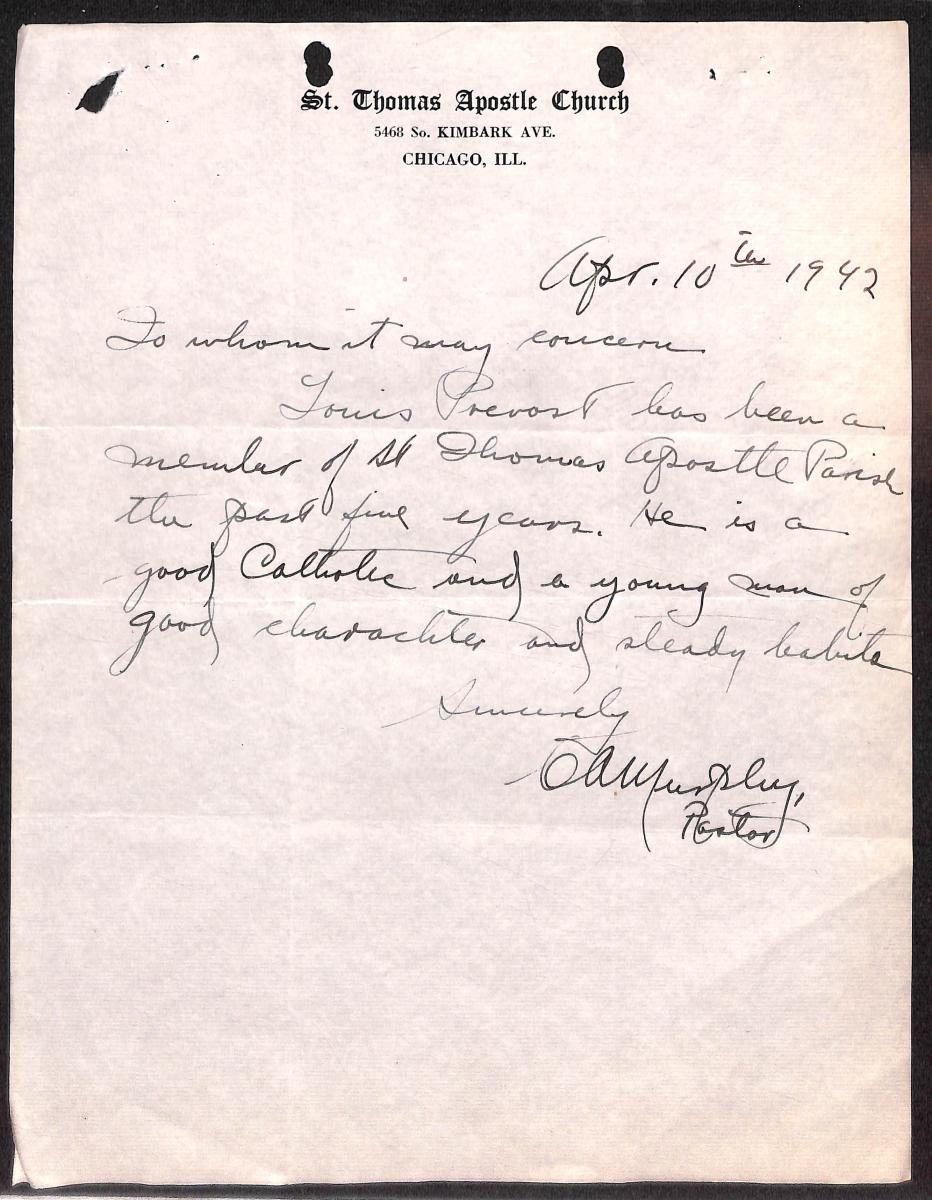 St. Thomas Apostle Church
5468 So. KIMBARK AVE.
CHICAGO, ILL.
Apr. 10th 1942
To whom it may concern
Louis Prevost has been a
member of St Thomas Apostle Parish
the past five years. He is a
good Catholic and a young man of
good charachter and steady habits
Sincerely
Murphy,
Pastor